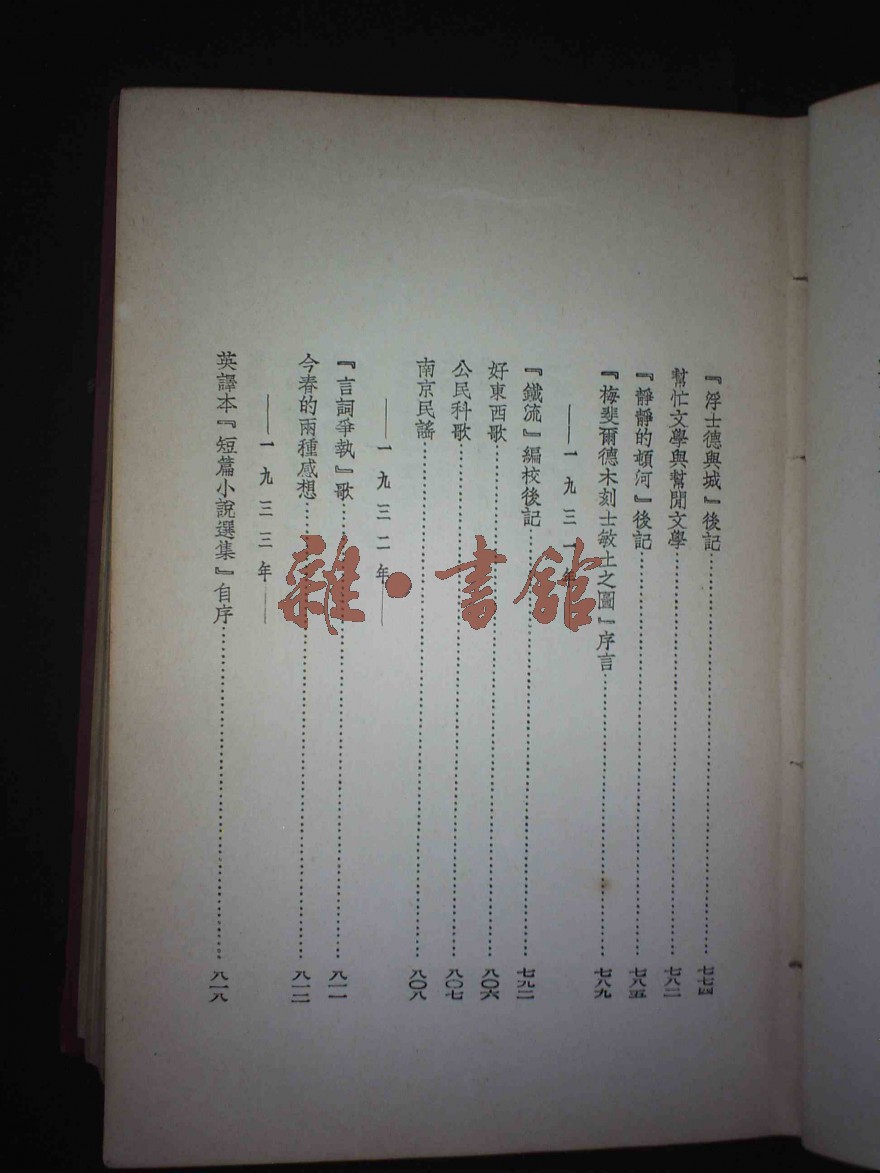 『浮士德與城』後記……七七四
幫忙文學與幫閒文學……七八二
『靜靜的頓河』後記……七八五
『梅斐爾德木刻士敏土之圖』序言……七八九
——一九三一年——
『鐵流』編校後記……七九二
好東西歌……八〇六
公民科歌……八〇七
南京民謠……八〇八
——一九三二年——
『言詞爭執』歌……八一一
今春的兩種感想……八一二
——一九三三年——
英譯本『短篇小說選集』自序……八一八
雜·書館